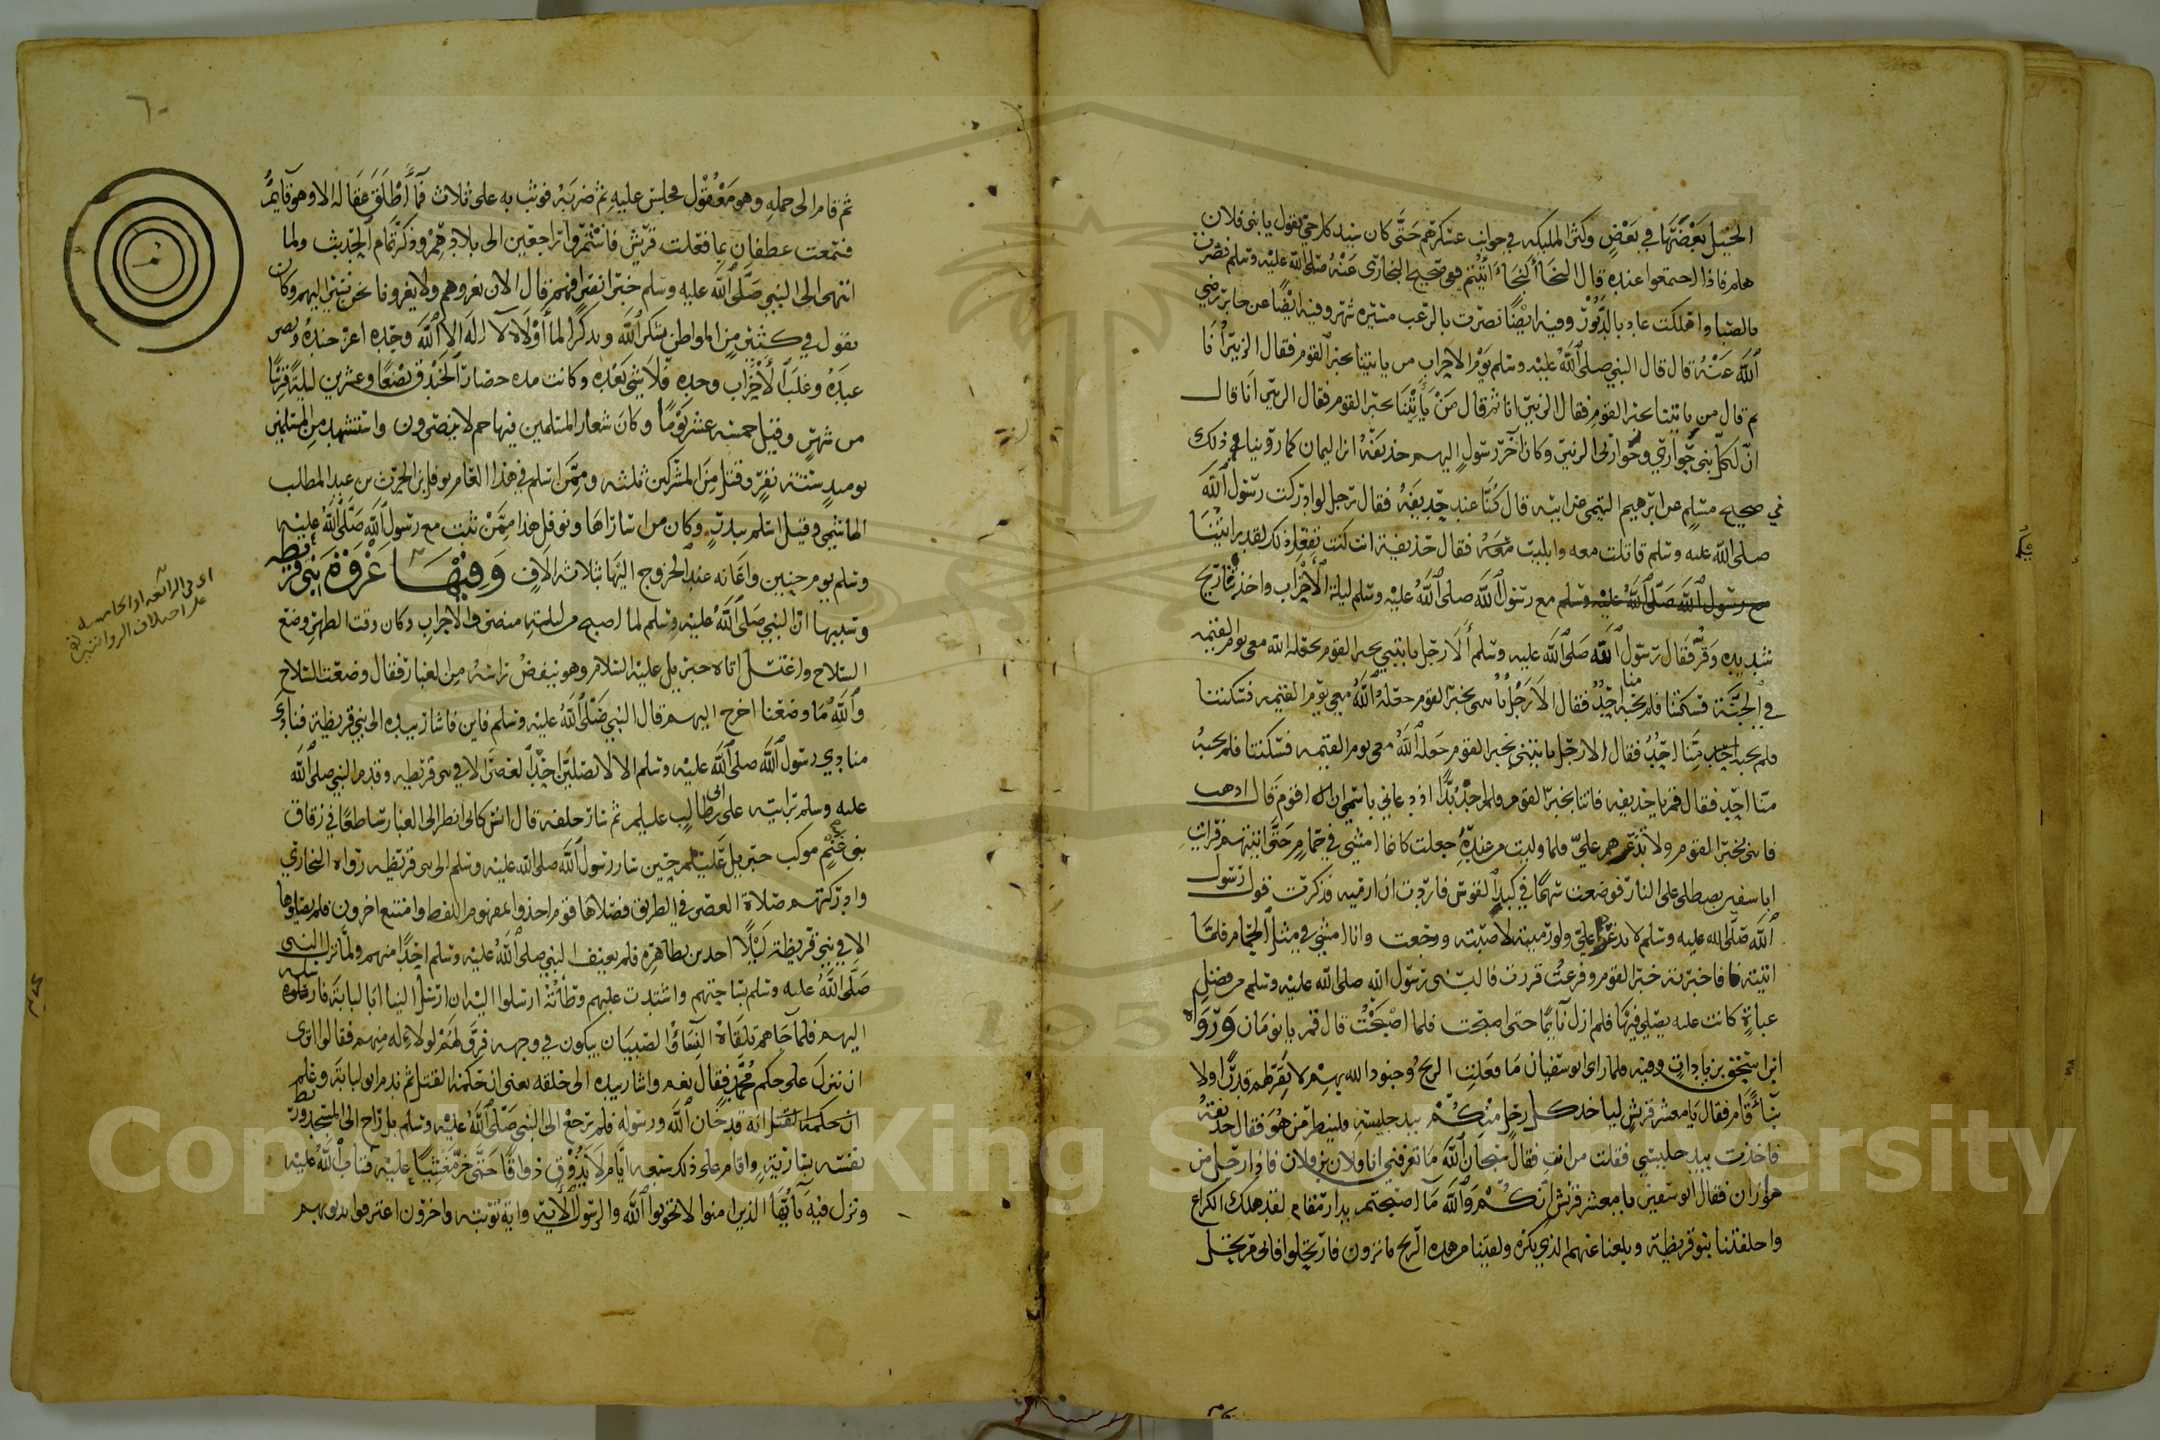 الخيل بعضها في بعض وكثر الملائكة في جوانب عسكرهم حتى كان سيد كل حي يقول يا بني فلان
هلم فاذا اجتمعوا عنده قال النجاء النجاء اتيتم وفي صحيح البخاري عنه صلى الله عليه وسلم نصرت
بالصبا واهلكت عاد بالدبور وفيه ايضا نصرت بالرعب مسيرة شهر وفيه ايضا عن جابر رضي
الله عنه قال قال النبي صلى الله عليه وسلم يوم الاحزاب من ياتينا بخبر القوم فقال الزبير انا
ثم قال من ياتينا بخبر القوم فقال الزبير انا ثم قال من ياتينا بخبر القوم فقال الزبير انا قال
ان لكل نبي حواري وحواري الزبير وكان آخر رسول اليهم حذيفة ابن اليمان كما روينا ذلك
في صحيح مسلم عن ابرهيم التيمي عن ابيه قال كنا عند حذيفة فقال رجل لو ادركت رسول الله
صلى الله عليه وسلم قاتلت معه وابليت معه فقال حذيفة انت كنت تفعل ذلك لقد رايتنا
مع رسول الله صلى الله عليه وسلم مع رسول الله صلى الله عليه وسلم ليلة الاحزاب واخذتنا ريح
شديده وقر فقال رسول الله صلى الله عليه وسلم ألا رجل ياتيني بخبر القوم جعله الله معي يوم القيمه
في الجنة فسكتنا فلم يجبه منا احد فقال الا رجل ياتيني بخبر القوم جعله الله معي يوم القيمه فسكتنا
فلم يجبه احد منا احد فقال الا رجل ياتيني بخبر القوم جعله الله معي يوم القيمه فسكتنا فلم يجبه
منا احد فقال قم يا حذيفه فاتنا بخبر القوم فلم اجد بدا اذ دعاني باسمي ان اقوم قال اذهب
فاتني بخبر القوم ولا تذعرهم علي فلما وليت من عنده جعلت كانما امشي في حمام حتى اتيتهم فرايت
ابا سفين يصطلي على النار فوضعت سهما في كبد القوس فاردت ان ارميه فذكرت قول رسول
الله صلى الله عليه وسلم لا تذعرهم علي ولو رميته لاصبته ورجعت وانا امشي في مثل الحمام فلما
اتيته فاخبرته خبر القوم وفرغت قررت فالبسني رسول الله صلى الله عليه وسلم من فضل
عباءة كانت عليه يصلي فيها فلم ازل نايما حتى اصبحت فلما اصبحت قال قم يا نومان ورواه
ابن اسحق بزيادات وفيه فلما راى ابو سفيان ما فعلت الريح وجنود الله بهم لا تقر لهم قدرا ولا
بناء قام فقال يا معشر قريش لياخذ كل رجل منكم بيد جليسه فلينظر من هو فقال حذيفة
فاخذت بيد جليسي فقلت من انت فقال سبحان الله ما تعرفني انا فلان بن فلان فاذا رجل من
هوازن فقال ابو سفين يا معشر قريش انكم والله ما اصبحتم بدار مقام لقد هلك الكراع
واخلفتنا بنو قريظة وبلغنا عنهم الذي نكره ولقينا من هذه الريح ما ترون فارتحلوا فاني مرتحل
٦٠
ثم قام الى جمله وهو معقول فجلس عليه ثم ضربه فوثب به على ثلاث فما أطلق عقاله الا وهو قايم
فسمعت غطفان بما فعلت قريش فاستمروا راجعين الى بلادهم وذكر تمام الحديث ولما
انتهى الى النبي صلى الله عليه وسلم خبر انفتالهم قال الان نغزوهم ولا يغزونا نحن نسير اليهم وكان
يقول في كثير من المواطن شكر الله وتذكرا لما أولاه لا اله الا الله وحده اعز جنده ونصر
عبده وغلب الأحزاب وحده فلا شي بعده وكانت مده حصار الخندق بضعا وعشرين ليلة قريبا
من شهر وقيل خمسه عشر يوما وكان شعار المسلمين فيها حم لا ينصرون واستشهد من المسلمين
يوميذ ستة نفر وقتل من المشركين ثلثه وممن اسلم في هذا العام نوفل بن الحرث بن عبد المطلب
الهاشمي وقيل اسلم ببدر وكان من اساراها ونوفل هذا ممن ثبت مع رسول الله صلى الله عليه
وسلم يوم حنين واعانه عند الخروج اليها بثلاثة الاف وفيها غزوة بني قريظه
وسببها ان النبي صلى الله عليه وسلم لما اصبح من ليلته منصرف الاحزاب وكان وقت الظهر وضع
السلاح واغتسل اتاه جبريل عليه السلام وهو ينفض راسه من الغبار فقال وضعت السلاح
والله ما وضعنا اخرج اليهم قال النبي صلى الله عليه وسلم فاين فاشار بيده الى بني قريظة فنادى
منادي رسول الله صلى الله عليه وسلم الا لا يصلين احد العصر الا في بني قريظه وقدم النبي صلى الله
عليه وسلم برايته علي بن ابي طالب عليهم ثم سار خلفه قال انس كاني انظر الى الغبار ساطعا في زقاق
بني غنم موكب جبريل عليه السلام حين سار رسول الله صلى الله عليه وسلم الى بني قريظه رواه البخاري
وادركتهم صلاة العصر في الطريق فصلاها قوم اخذوا بمفهوم اللفظ وامتنع اخرون فلم يصلوها
الا في بني قريظة ليلا اخذين بظاهره فلم يعنف النبي صلى الله عليه وسلم احدا منهم ولما نزل النبي
صلى الله عليه وسلم بساحتهم واشتدت عليهم وطأته ارسلوا اليه ان ارسل الينا ابا لبابة فارسله
اليهم فلما جاهم تلقاه النساء والصبيان يبكون في وجهه فرق لهم لولاء له منهم فقالوا اترى
ان ننزل على حكم محمد فقال نعم واشار بيده الى حلقه يعني ان حكمه القتل ثم ندم ابو لبابة وعلم
انه قد خان الله ورسوله فلم يرجع الى النبي صلى الله عليه وسلم بل راح الى المسجد وربط
نفسه بسارية واقام على ذلك سبعه ايام لا يذوق ذواقا حتى خر مغشيا عليه فتاب الله عليه
ونزل فيه يأيها الذين امنوا لا تخونوا الله والرسول الآية واية توبته واخرون اعترفوا بذنوبهم
اي في الرابعه او الخامسه
على اختلاف الروايتين
Copyright © King Saud University
1957